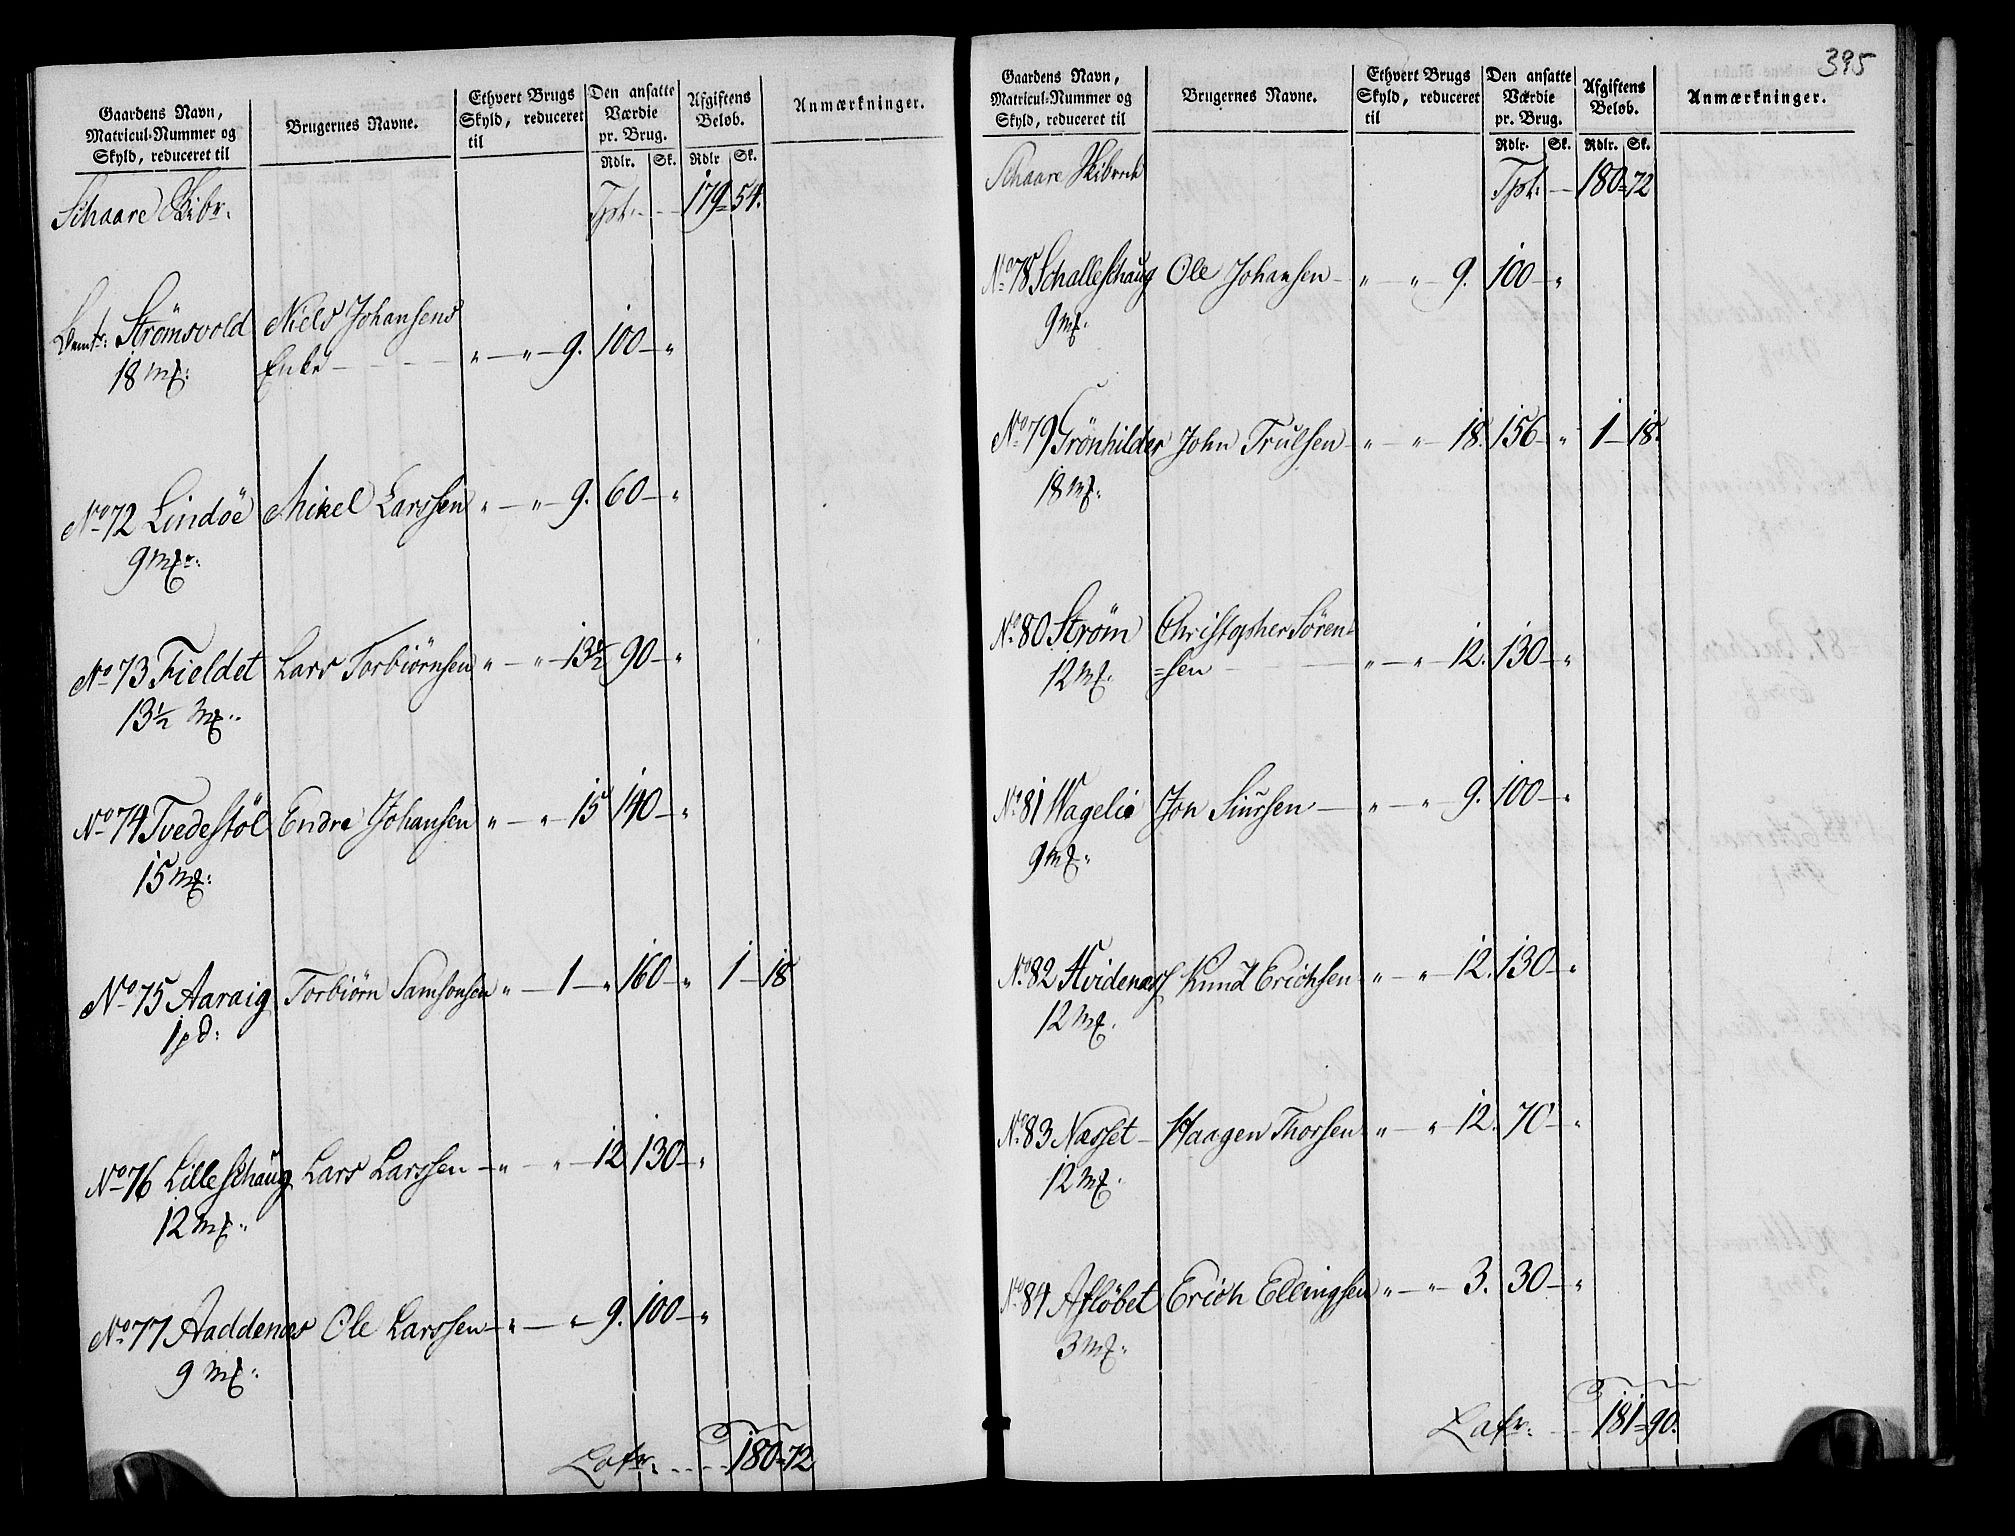 Gaardens Navn,
Matricul-Nummer og
Skyld, reduceret til
Brugernes Navne.
Ethvert Brugs
Skyld, reduceret
til
Den ansatte
Værdie
pr. Brug.
Rdlr. Sk.
Afgiftens
Beløb.
Rdlr Sk.
Anmærkninger.
Schaare Skibr. Tpt. 179 = 54.
Strømsvold Niels Johansens
18 mk: Enke — " — " — 9. 100 — "
No 72 Lindöe Mikel Larssen " — " — 9. 60 — "
9 mk:
No 73 Fieldet Lars Torbiörnsen " — " — 13½ 90 — "
13½ mk:
No 74 Tvedestöl Endre Johansen " — " 15 140 — "
15 mk:
No 75 Aaraig Torbiörn Samsonsen " — 1 — " 160 — " 1 — 18
1 pd:
No 76 Lilleschaug Lars Larssen — " — " — 12 130 — "
12 mk:
No 77 Aaddenæs Ole Larssen — " — " 9. 100 — "
9 mk:
Latr. 180 = 72
395
Gaardens Navn,
Matricul-Nummer og
Skyld, reduceret til
Brugernes Navne.
Ethvert Brugs
Skyld, reduceret
til
Den ansatte
Værdie
pr. Brug.
Rdlr. Sk.
Afgiftens
Beløb.
Rdlr. Sk.
Anmærkninger.
Schaare Skibrede Tpt. — 180 = 72
No 78 Schalleschaug Ole Johansen — " — " — 9. 100 — "
9 mk:
No 79 Grönhilder John Trulsen — " — " — 18. 156 — " 1 — 18.
18 mk:
No 80 Ström Christopher Sören=
12 mk. =sen — " — " — 12. 130 — "
No 81 Wagelie Jon Siursen — " — " — 9. 100 — "
9 mk.
No 82 Hvidenæs Knud Erichsen " — " — 12. 130 — "
12 mk.
No 83 Næsset — Haagen Thorsen " — " — 12. 70 — "
12 mk.
No 84 Aflöbet Erich Ellingsen " — " — 3. 30 — "
3 mk.
Latr. 181 = 90.